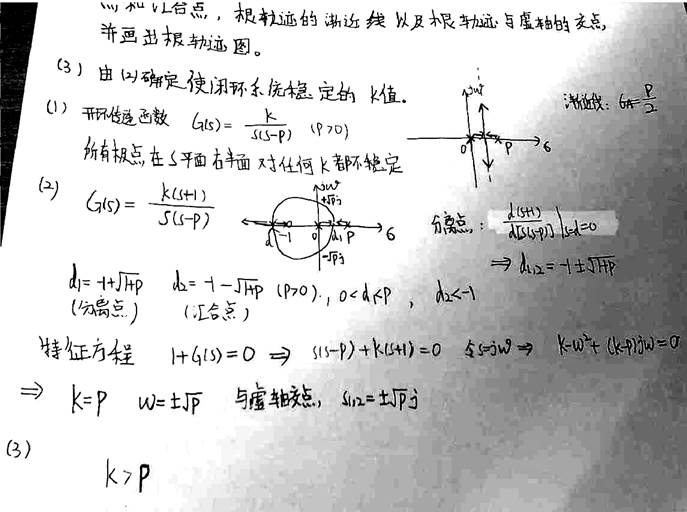 点和汇合点，根轨迹的渐近线以及根轨迹与虚轴的交点，
并画出根轨迹图。
(3) 由(2)确定使闭环系统稳定的 K值。
(1) 开环传递函数 G(s)=K/S(S-P) (P>0)
jω
0 P σ
渐近线: σA=P/2
所有极点在S平面右半面 对任何K都不稳定
(2) G(s)=K(S+1)/S(S-P)
jω
+√Pj
d -1 0 d1 P σ
-√Pj
分离点: d(S+1)/d[S(S-P)]|s=d=0
⇒ d1,2=-1±√1+P
d1=-1+√1+P d2=-1-√1+P (P>0), 0<d1<P, d2<-1
(分离点) (汇合点)
特征方程 1+G(s)=0 ⇒ S(S-P)+K(S+1)=0 令S=jω ⇒ K-ω²+(K-P)jω=0
⇒ K=P ω=±√P 与虚轴交点, S1,2=±√Pj
(3)
K>P